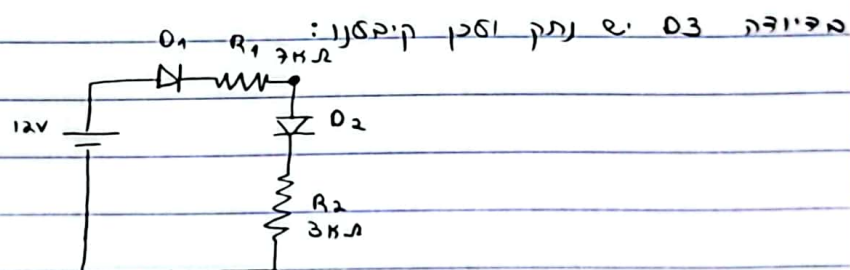 בדיודה D3 יש נתק ולכן קיבלנו:
D1 R1 7KΩ
12V
D2
R2
3KΩ